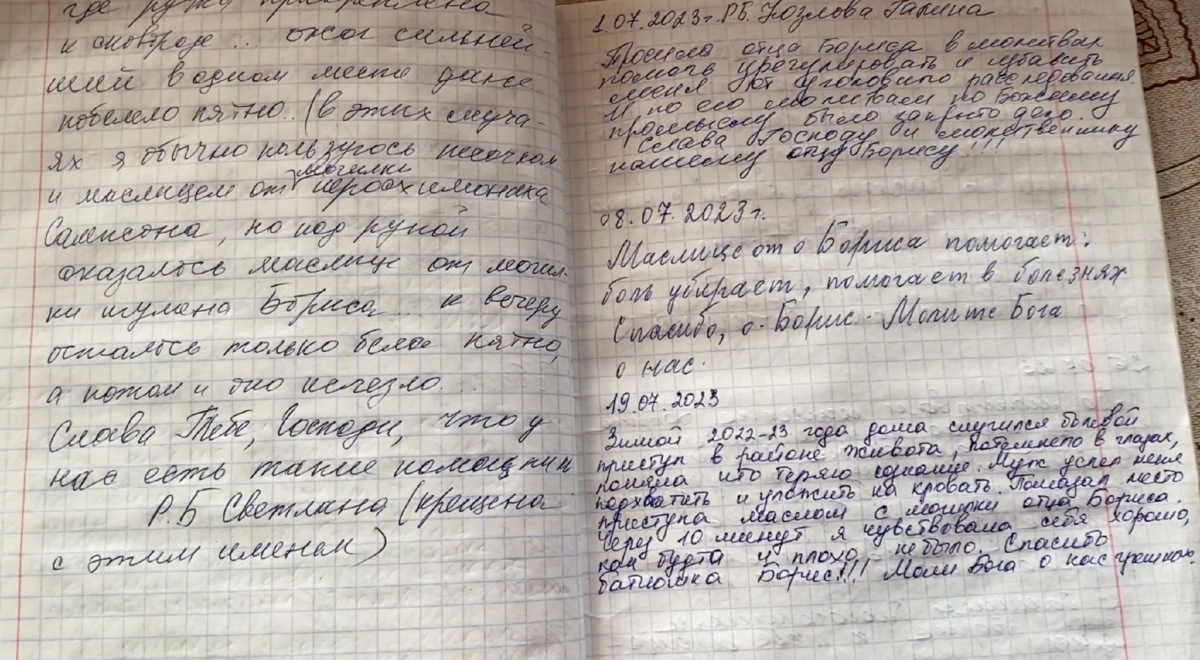 где ручка прикреплена
к сковороде .. ожог сильней-
ший в одном месте даже
побелело пятно.. (в этих случа-
ях я обычно пользуюсь песочком
могилки
и маслицем от иеросхимонаха
Сампсона, но под рукой
оказалось маслице от могил-
ки игумена Бориса... к вечеру
осталось только белое пятно,
а потом и оно исчезло...
Слава Тебе, Господи, что у
нас есть такие помощники
Р.Б Светлана (крещена
с этим именем)
1.07.2023г. Р.Б. Козлова Галина
Просила отца Бориса в молитвах
помочь урегулировать и избавить
меня от уголовного расследования.
И по его молитвам по Божьему
промыслу было закрыто дело.
Слава Господу и молитвеннику
нашему отцу Борису!!!
08.07.2023г.
Маслице от о Бориса помогает:
боль убирает, помогает в болезнях
Спасибо, о. Борис. Молите Бога
о нас.
19.07.2023
Зимой 2022-23 года дома случился болевой
приступ в районе живота, потемнело в глазах,
поняла что теряю сознание. Муж успел меня
подхватить и уложить на кровать. Помазал место
приступа маслом с могилки отца Бориса.
Через 10 минут я чувствовала себя хорошо,
как будта и плохо не было. Спасибо
батюшка Борис!!! Моли Бога о нас грешных.